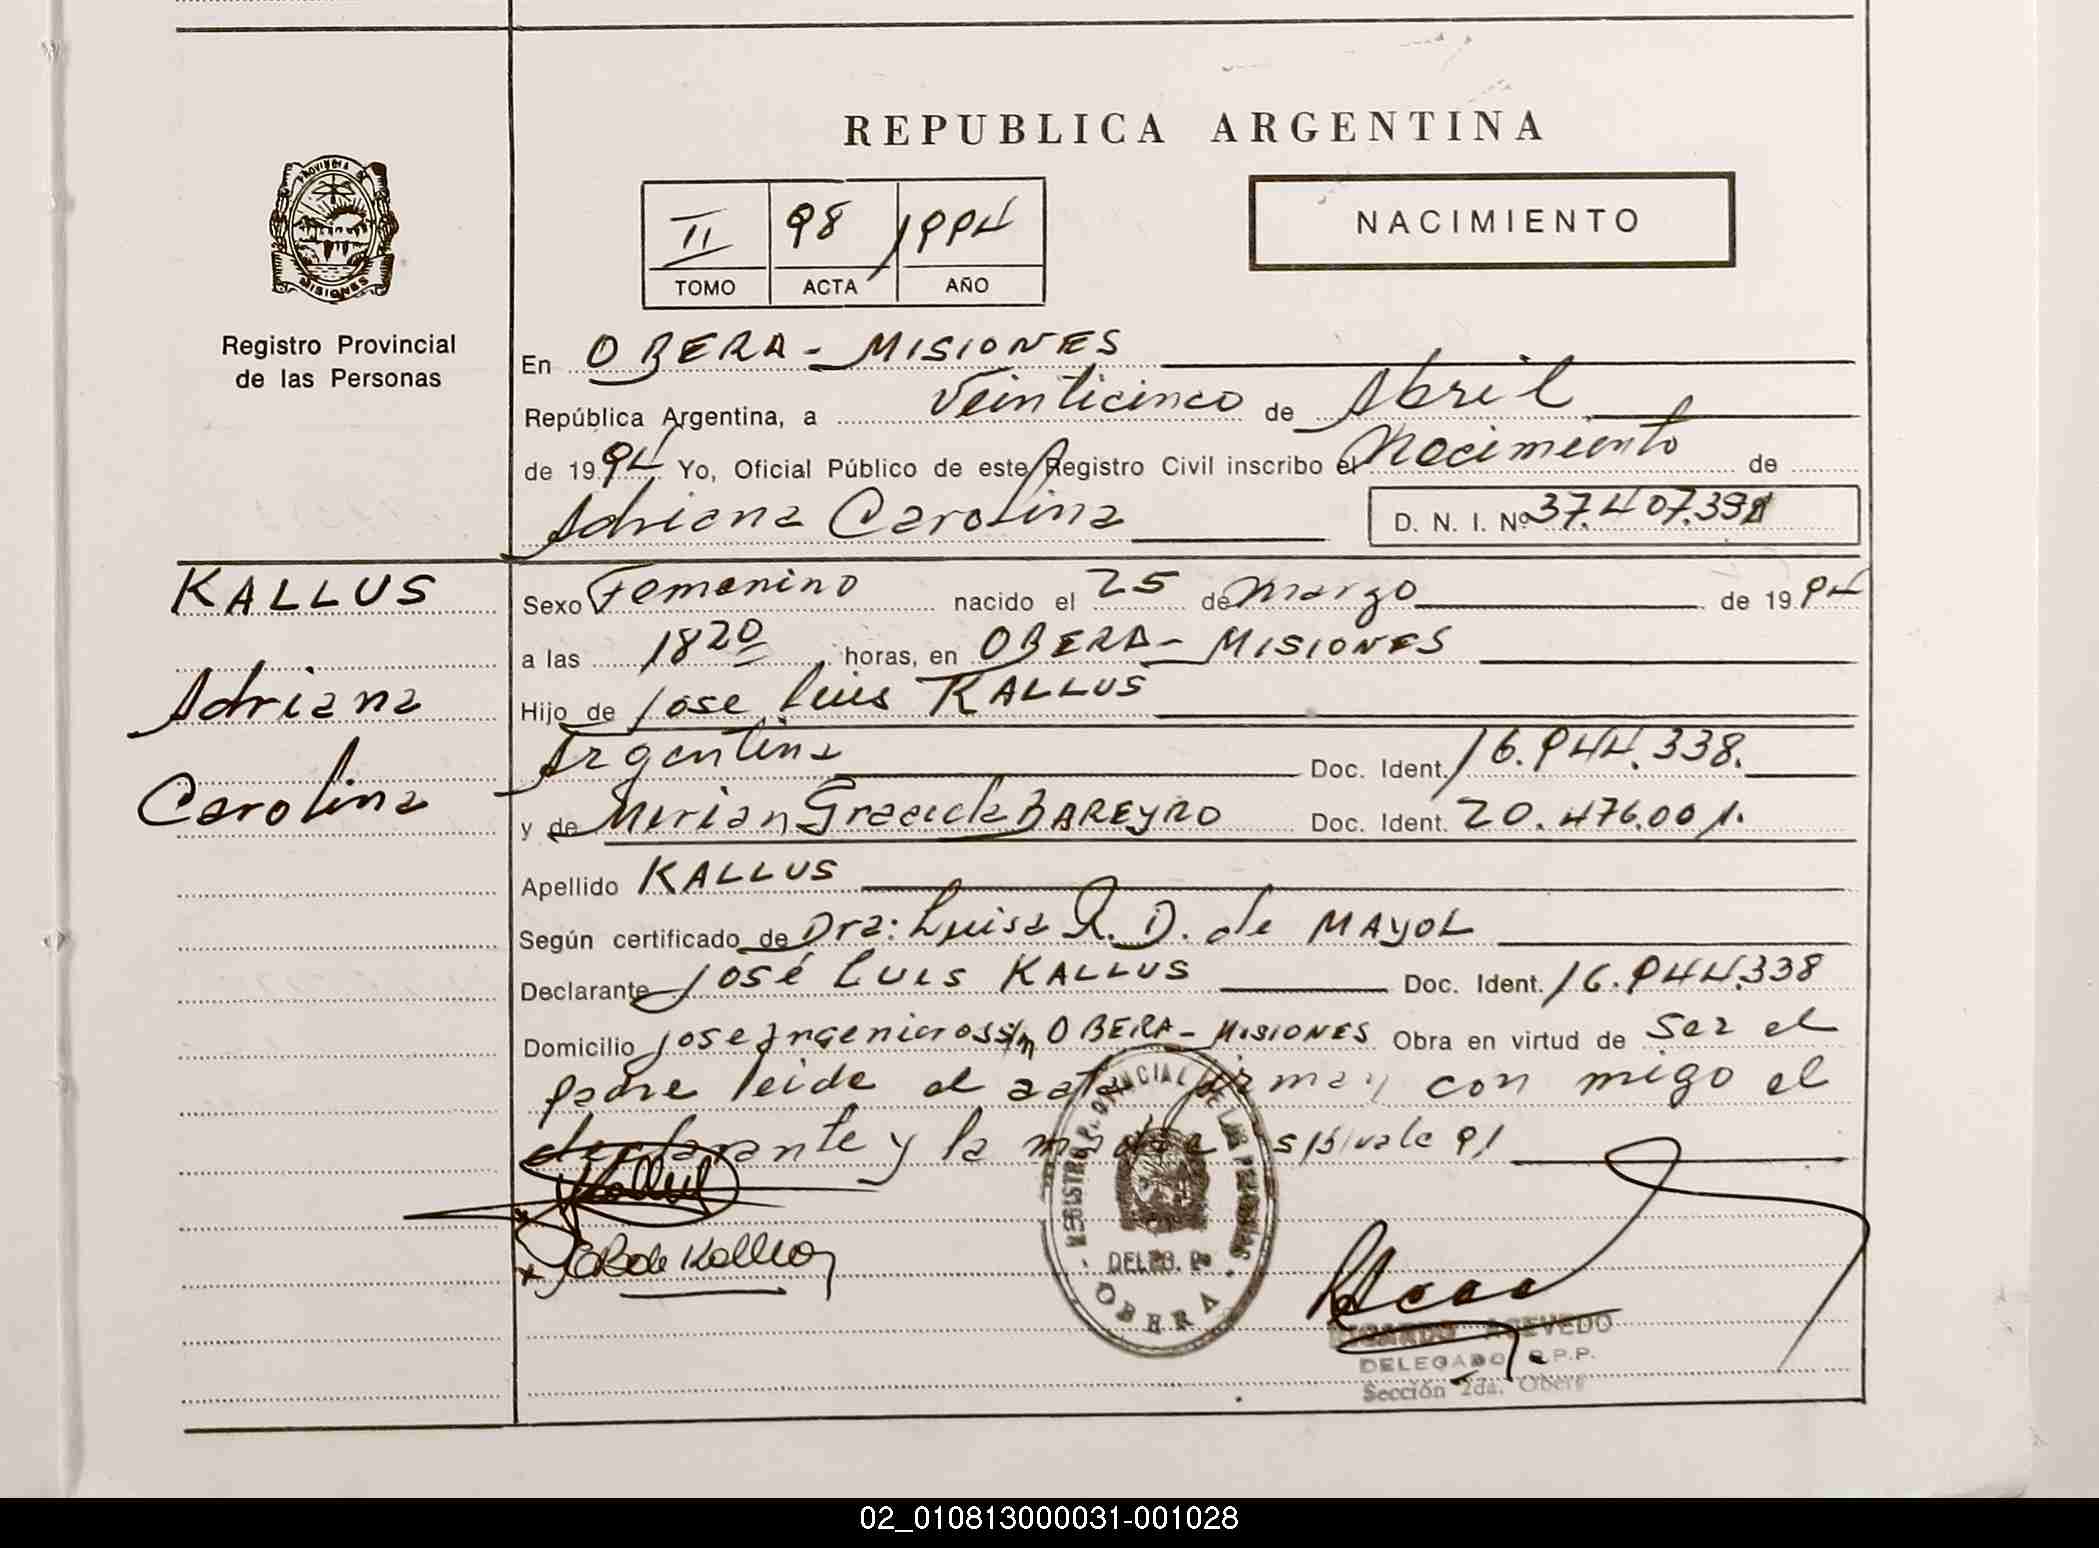 REPUBLICA ARGENTINA
PROVINCIA DE
MISIONES
II 98 1994
TOMO ACTA AÑO
NACIMIENTO
Registro Provincial
de las Personas
En OBERA - MISIONES
República Argentina, a Veinticinco de Abril
de 1994 Yo, Oficial Público de este Registro Civil inscribo el Nacimiento de
Adriana Carolina D. N. I. Nº 37.407.391
KALLUS
Adriana
Carolina
Sexo Femenino nacido el 25 de Marzo de 1994
a las 1820 horas, en OBERA - MISIONES
Hijo de Jose Luis KALLUS
Argentina Doc. Ident. 16.944.338.
y de Mirian Graciela BAREYRO Doc. Ident. 20.476.001.
Apellido KALLUS
Según certificado de Dra: Luisa R. D. de MAYOL
Declarante José LUIS KALLUS Doc. Ident. 16.944.338
Domicilio Jose Ingenieros s/n OBERA - MISIONES Obra en virtud de Ser el
padre leida el acta firman con migo el
declarante y la madre s/b/vale 91
Kallus
de Kallus
REGISTRO PROVINCIAL DE LAS PERSONAS
DELEG.
OBERA
RICARDO ACEVEDO
DELEGADO R.P.P.
Sección 2da. Oberá
02_010813000031-001028